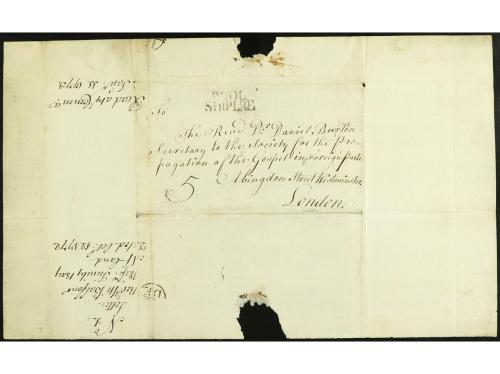 POOL
SHIP LRE
To
The Revd. Dr. Daniel Burton
Secretary to the Society for the Pro-
pagation of the Gospel in foreign Parts
5 Abingdon Street Westminster
London
Read at Comm.ee
Jan. 1773.
Letter
Revd. Mr. Balfour
Trinity Bay
Dated 1772